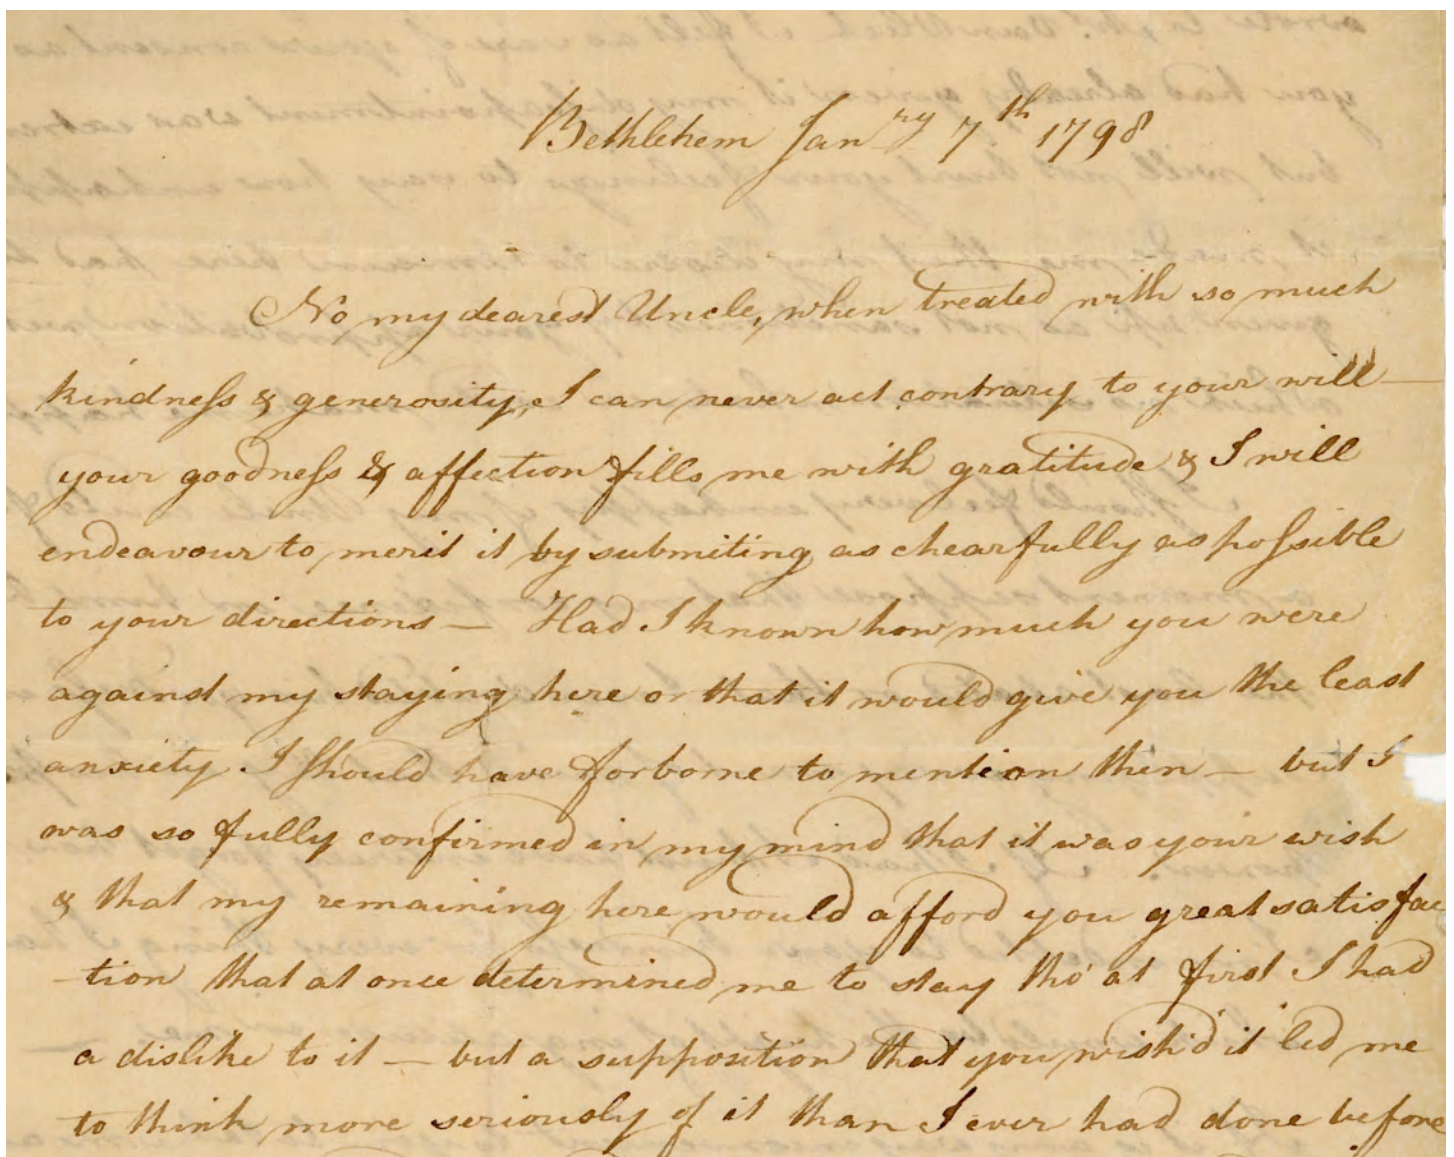 Bethlehem Janry 7th 1798
No my dearest Uncle, when treated with so much
kindness & generosity, I can never act contrary to your will—
your goodness & affection fills me with gratitude & I will
endeavour to merit it by submiting as chearfully as possible
to your directions — Had I known how much you were
against my staying here or that it would give you the least
anxiety I should have forborne to mention then — but I
was so fully confirmed in my mind that it was your wish
& that my remaining here would afford you great satisfac
-tion that at once determined me to stay tho' at first I had
a dislike to it — but a supposition that you wish'd it led me
to think more seriously of it than I ever had done before